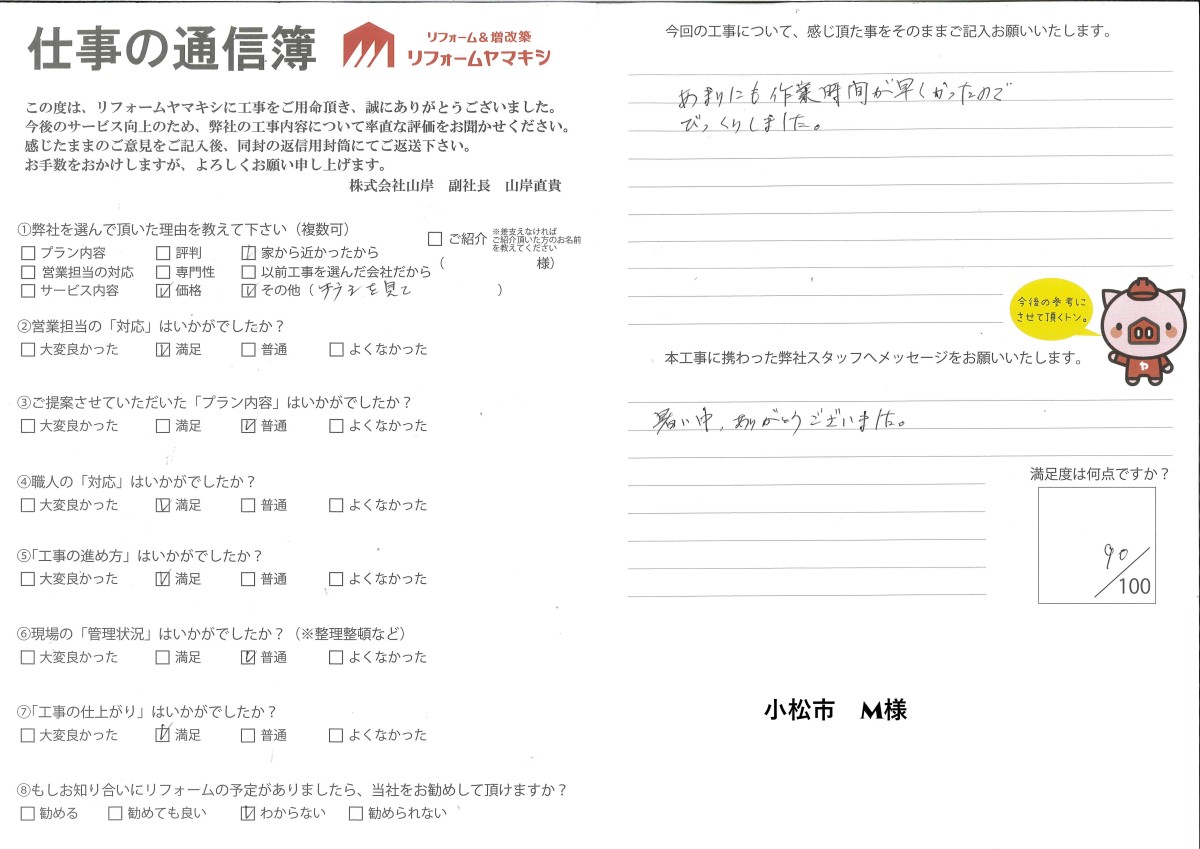 仕事の通信簿
リフォーム&増改築
リフォームヤマキシ
この度は、リフォームヤマキシに工事をご用命頂き、誠にありがとうございました。
今後のサービス向上のため、弊社の工事内容について率直な評価をお聞かせください。
感じたままのご意見をご記入後、同封の返信用封筒にてご返送下さい。
お手数をおかけしますが、よろしくお願い申し上げます。
株式会社山岸 副社長 山岸直貴
①弊社を選んで頂いた理由を教えて下さい（複数可）
□プラン内容 □評判 ☑家から近かったから □ご紹介 ※差支えなければ
ご紹介頂いた方のお名前
を教えてください
□営業担当の対応 □専門性 □以前工事を選んだ会社だから （ 様）
□サービス内容 ☑価格 ☑その他（チラシを見て ）
②営業担当の「対応」はいかがでしたか？
□大変良かった ☑満足 □普通 □よくなかった
③ご提案させていただいた「プラン内容」はいかがでしたか？
□大変良かった □満足 ☑普通 □よくなかった
④職人の「対応」はいかがでしたか？
□大変良かった ☑満足 □普通 □よくなかった
⑤「工事の進め方」はいかがでしたか？
□大変良かった ☑満足 □普通 □よくなかった
⑥現場の「管理状況」はいかがでしたか？（※整理整頓など）
□大変良かった □満足 ☑普通 □よくなかった
⑦「工事の仕上がり」はいかがでしたか？
□大変良かった ☑満足 □普通 □よくなかった
⑧もしお知り合いにリフォームの予定がありましたら、当社をお勧めして頂けますか？
□勧める □勧めても良い ☑わからない □勧められない
今回の工事について、感じ頂た事をそのままご記入お願いいたします。
あまりにも作業時間が早くかったので
びっくりしました。
今後の参考に
させて頂くトン。
ヤ
本工事に携わった弊社スタッフへメッセージをお願いいたします。
暑い中、ありがとうございました。
満足度は何点ですか？
90/100
小松市 M様